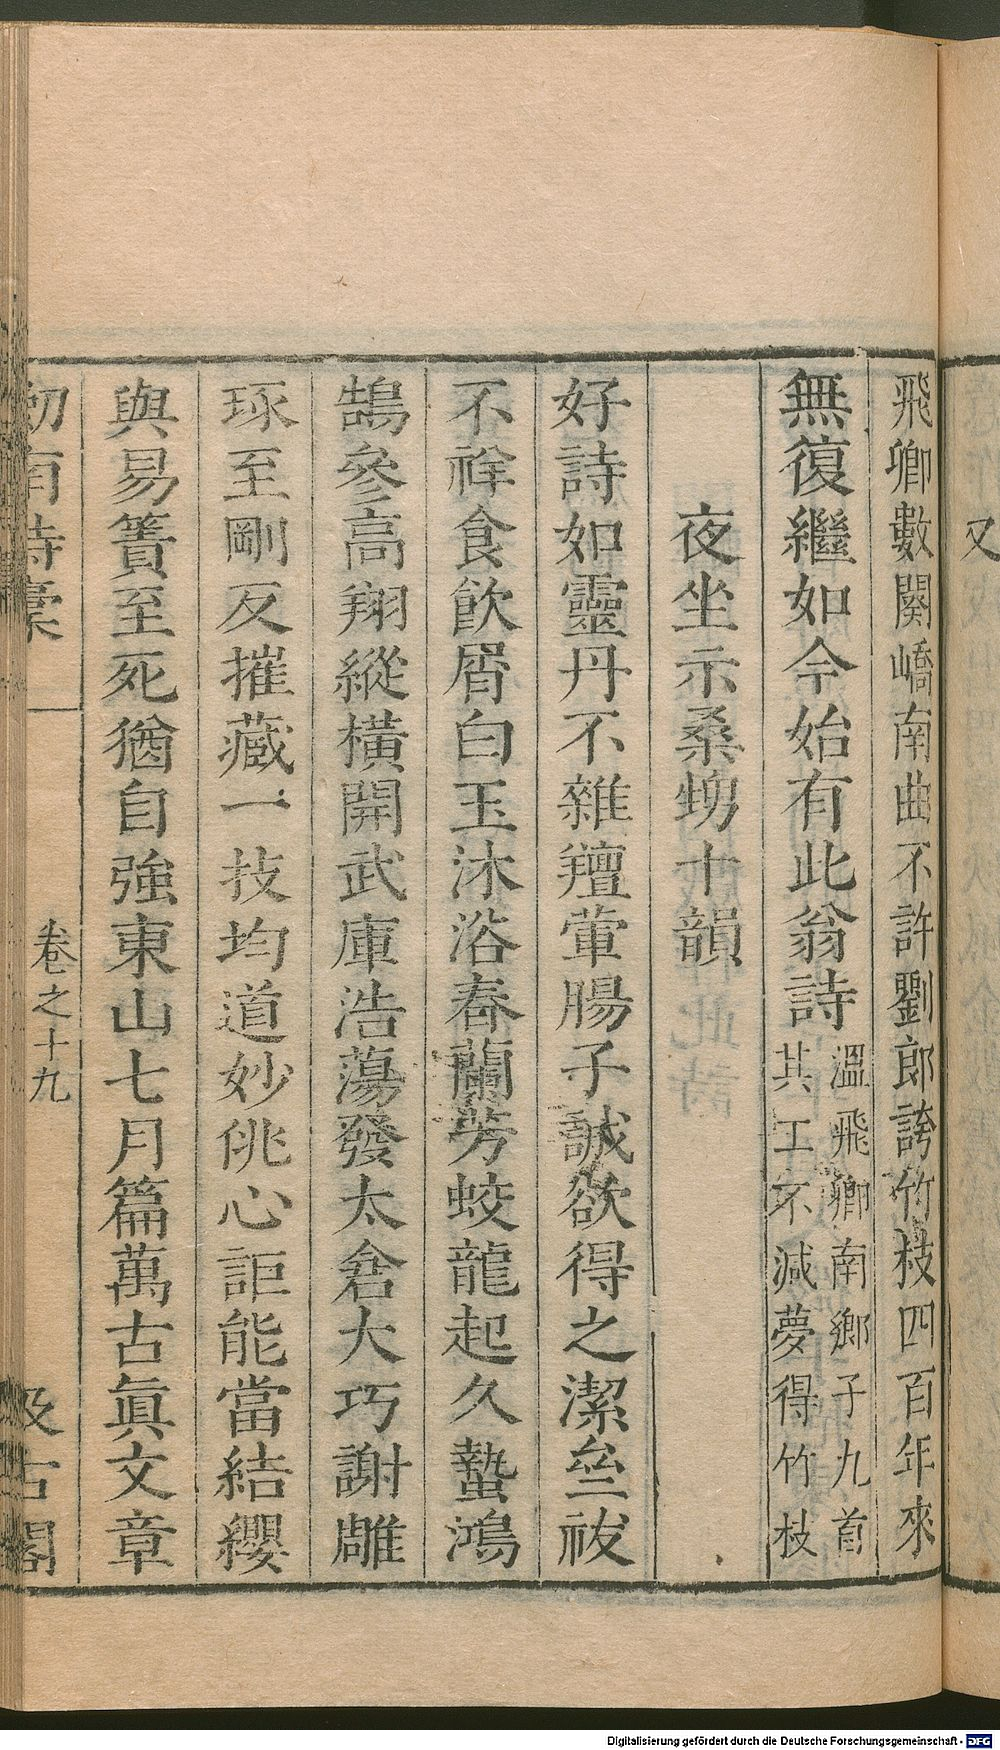 又
飛卿數闋嶠南曲不許劉郎誇竹枝四百年來
無復繼如今始有此翁詩溫飛卿南鄉子九首
其工不減夢得竹枝
夜坐示桑甥十韻
好詩如靈丹不雜羶葷腸子誠欲得之潔齋祓
不祥食飲屑白玉沐浴春蘭芳蛟龍起久蟄鴻
鵠參高翔縱橫開武庫浩蕩發太倉大巧謝雕
琢至剛反摧藏一技均道妙佻心詎能當結纓
與易簀至死猶自強東山七月篇萬古眞文章
劒南詩稾 卷之十九 汲古閣
Digitalisierung gefördert durch die Deutsche Forschungsgemeinschaft - DFG